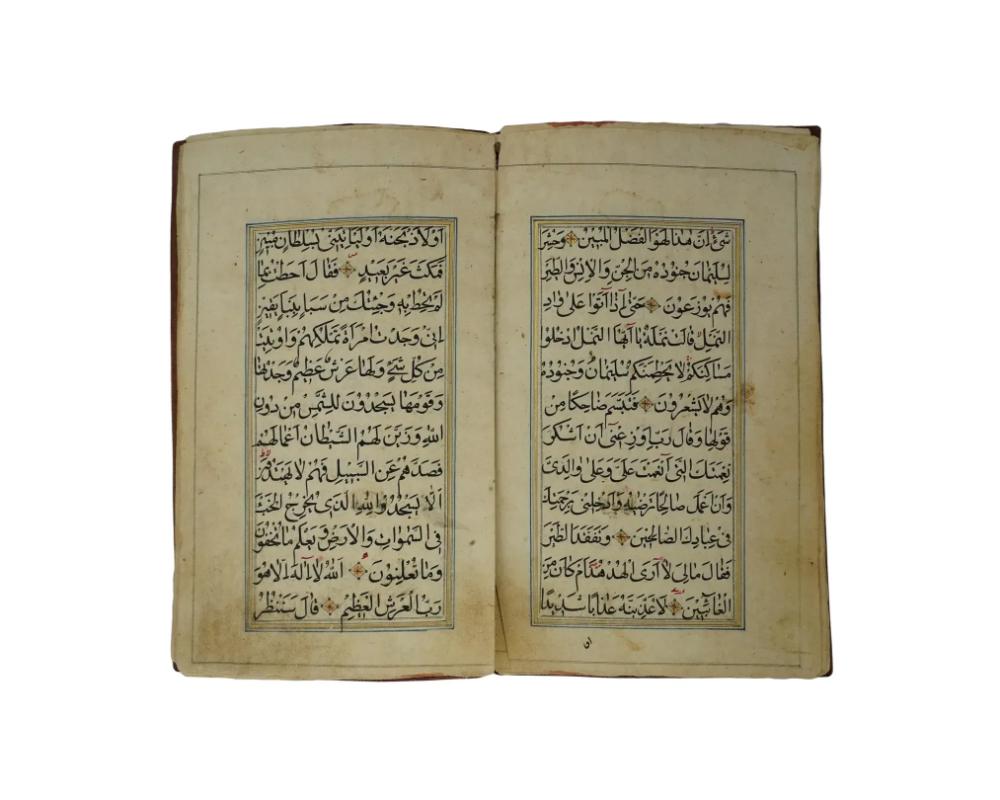 شَیْءٍ اِنَّ هٰذَا لَهُوَ الْفَضْلُ الْمُبِیْنُ وَحُشِرَ
لِسُلَیْمَانَ جُنُوْدُهُ مِنَ الْجِنِّ وَالْاِنْسِ وَالطَّیْرِ
فَهُمْ یُوْزَعُوْنَ حَتّٰی اِذَا اَتَوْا عَلٰی وَادِ
النَّمْلِ قَالَتْ نَمْلَةٌ یَا اَیُّهَا النَّمْلُ ادْخُلُوْا
مَسَاکِنَکُمْ لَا یَحْطِمَنَّکُمْ سُلَیْمَانُ وَجُنُوْدُهُ
وَهُمْ لَا یَشْعُرُوْنَ فَتَبَسَّمَ ضَاحِکًا مِنْ
قَوْلِهَا وَقَالَ رَبِّ اَوْزِعْنِیْ اَنْ اَشْکُرَ
نِعْمَتَكَ الَّتِیْ اَنْعَمْتَ عَلَیَّ وَعَلٰی وَالِدَیَّ
وَاَنْ اَعْمَلَ صَالِحًا تَرْضٰیهُ وَاَدْخِلْنِیْ بِرَحْمَتِكَ
فِیْ عِبَادِكَ الصَّالِحِیْنَ وَتَفَقَّدَ الطَّیْرَ
فَقَالَ مَالِیَ لَا اَرَی الْهُدْهُدَ اَمْ کَانَ مِنَ
الْغَائِبِیْنَ لَاُعَذِّبَنَّهُ عَذَابًا شَدِیْدًا
اَوْ لَاَذْبَحَنَّهُ اَوْ لَیَاْتِیَنِّیْ بِسُلْطَانٍ مُبِیْنٍ
فَمَکَثَ غَیْرَ بَعِیْدٍ فَقَالَ اَحَطْتُ بِمَا
لَمْ تُحِطْ بِهِ وَجِئْتُكَ مِنْ سَبَاٍ بِنَبَاٍ یَقِیْنٍ
اِنِّیْ وَجَدْتُ امْرَاَةً تَمْلِکُهُمْ وَاُوْتِیَتْ
مِنْ کُلِّ شَیْءٍ وَلَهَا عَرْشٌ عَظِیْمٌ وَجَدْتُهَا
وَقَوْمَهَا یَسْجُدُوْنَ لِلشَّمْسِ مِنْ دُوْنِ
اللّٰهِ وَزَیَّنَ لَهُمُ الشَّیْطَانُ اَعْمَالَهُمْ
فَصَدَّهُمْ عَنِ السَّبِیْلِ فَهُمْ لَا یَهْتَدُوْنَ
اَلَّا یَسْجُدُوْا لِلّٰهِ الَّذِیْ یُخْرِجُ الْخَبْءَ
فِی السَّمٰوَاتِ وَالْاَرْضِ وَیَعْلَمُ مَا تُخْفُوْنَ
وَمَا تُعْلِنُوْنَ اَللّٰهُ لَا اِلٰهَ اِلَّا هُوَ
رَبُّ الْعَرْشِ الْعَظِیْمِ قَالَ سَنَنْظُرُ